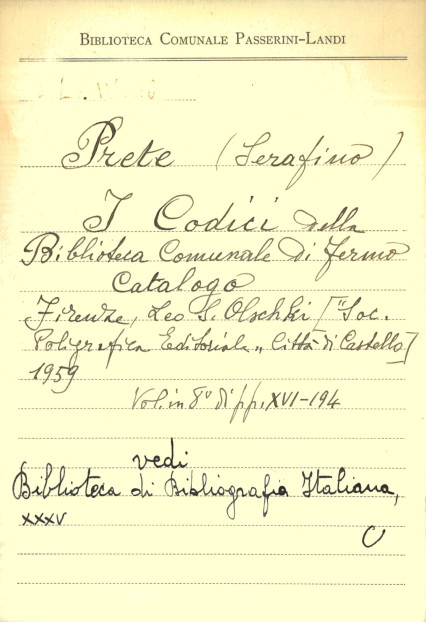 BIBLIOTECA COMUNALE PASSERINI-LANDI
Prete (Serafino)
I Codici della
Biblioteca Comunale di Fermo
Catalogo
Firenze, Leo S. Olschki ["Soc.
Poligrafica Editoriale „ Città di Castello]
1959
Vol. in 8° di pp. XVI-194
vedi
Biblioteca di Bibliografia Italiana,
XXXV